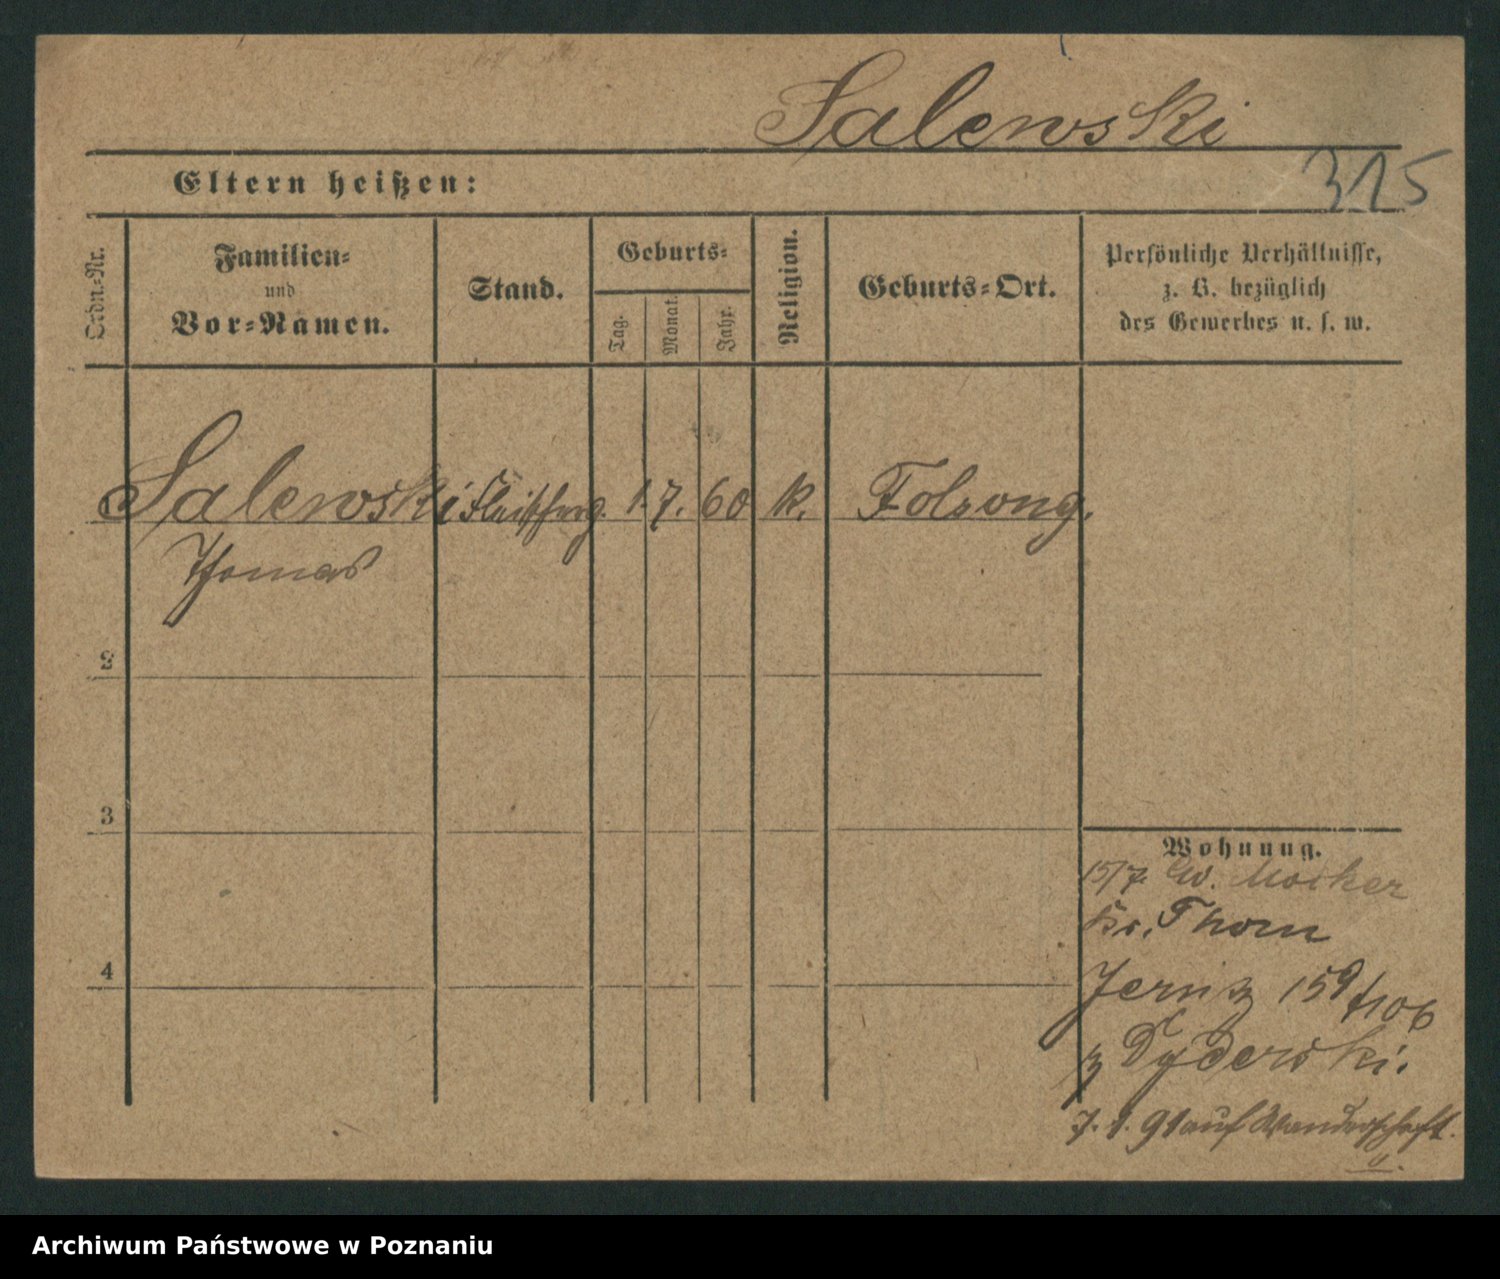 Salewski
315
Eltern heißen:
Ordn.-Nr.
Familien-
und
Vor-Namen.
Stand.
Geburts-
Tag.
Monat.
Jahr.
Religion.
Geburts-Ort.
Persönliche Verhältnisse,
z. B. bezüglich
des Gewerbes u. s. w.
Salewski Fleischerg. 1. 7. 60 k. Folsong.
Thomas
2
3
4
Wohnung.
15/7. Mocker
Kr. Thorn
Jersitz 159/106
z Dyderski.
7. 1. 91 auf Wanderschaft.
Archiwum Państwowe w Poznaniu